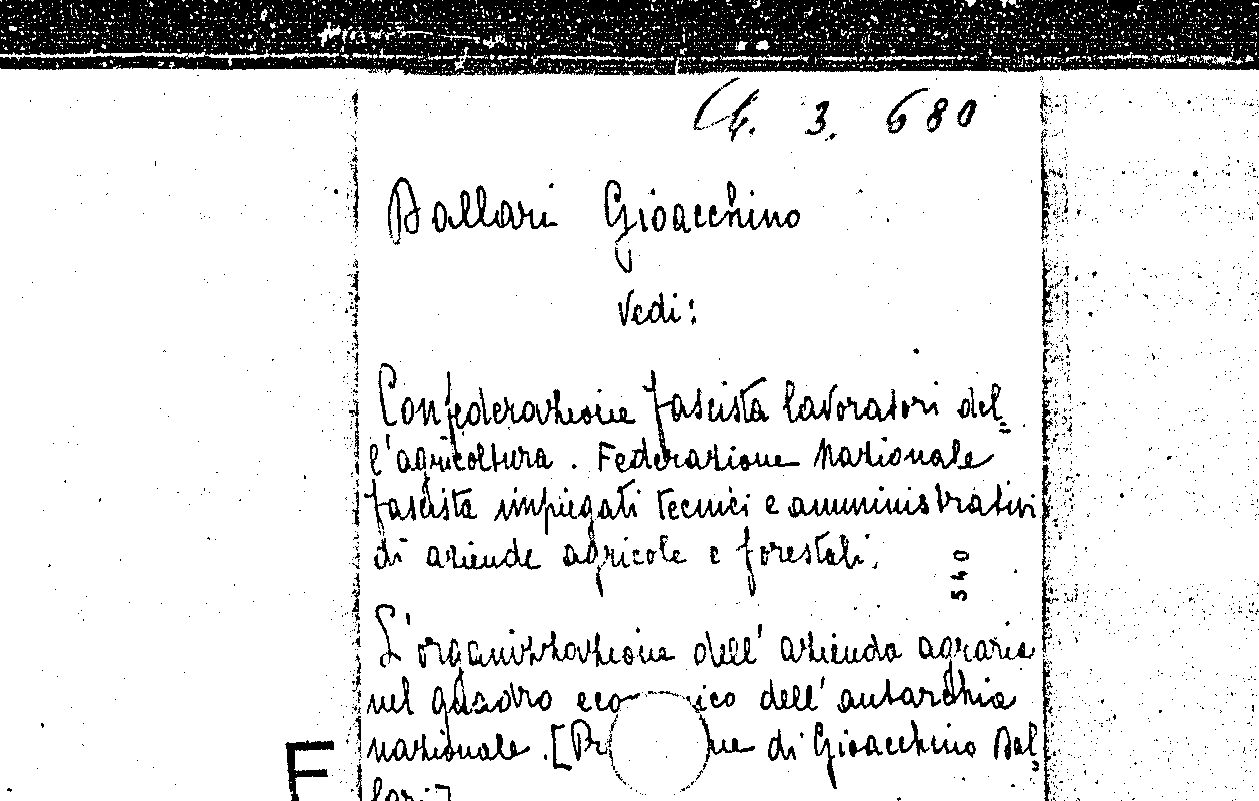 G. 3. 680
Dallari Gioacchino
Vedi:
Confederazione fascista lavoratori del=
l'agricoltura. Federazione Nazionale
fascista impiegati tecnici e amministrativi
di aziende agricole e forestali.
540
L'organizzazione dell'azienda agraria
nel quadro eco ico dell'autarchia
nazionale. [Pr ne di Gioacchino Dal=
lari]
F